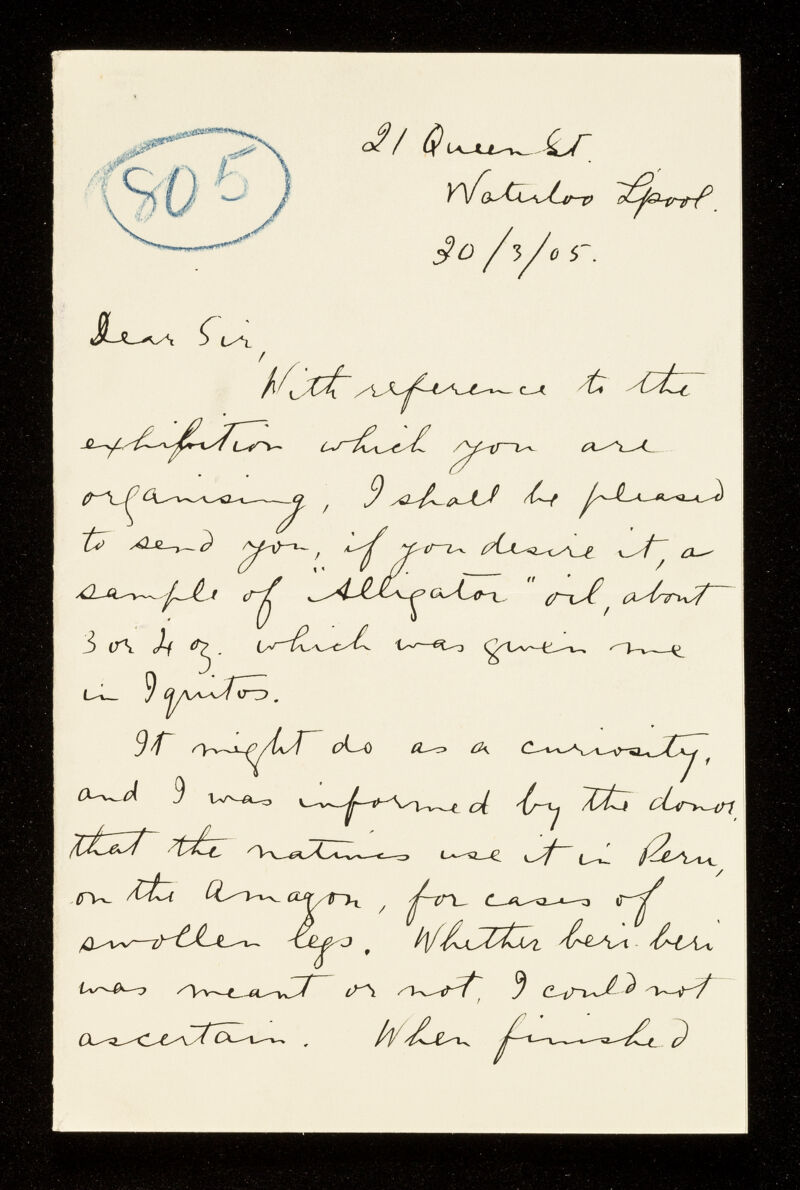 805
21 Queen St.
Waterloo L'pool.
30/3/05.
Dear Sir,
With reference to the
exhibition which you are
organising, I shall be pleased
to send you, if you desire it, a
sample of "Alligator" oil, about
3 or 4 oz. which was given me
in Iquitos.
It might do as a curiosity,
and I was informed by the donor,
that the natives use it in Peru,
on the Amazon, for cases of
swollen legs. Whether beri-beri
was meant or not, I could not
ascertain. When finished